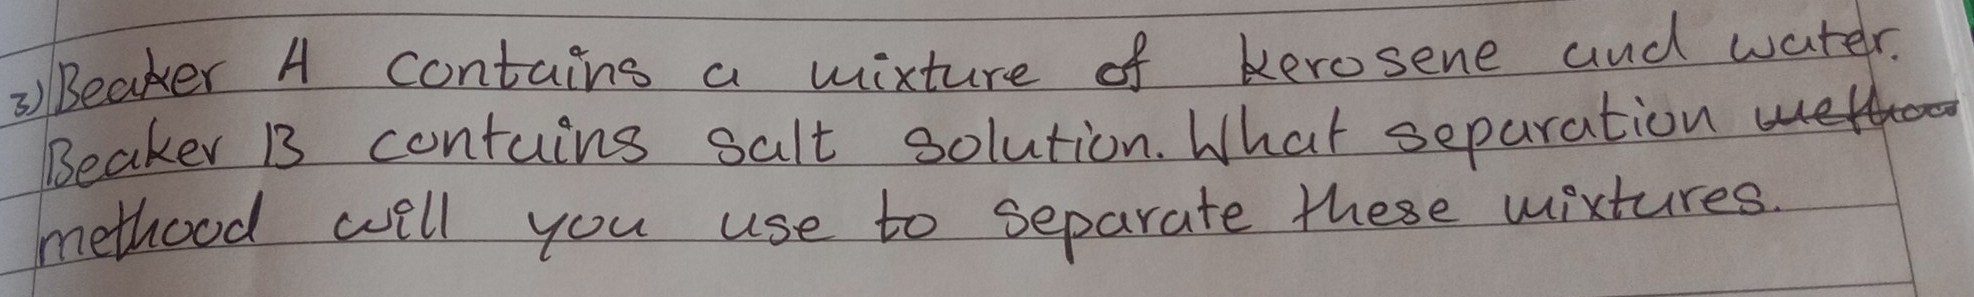 3) Beaker A contains a mixture of kerosene and water.
Beaker B contains salt solution. What separation
methood will you use to separate these mixtures.